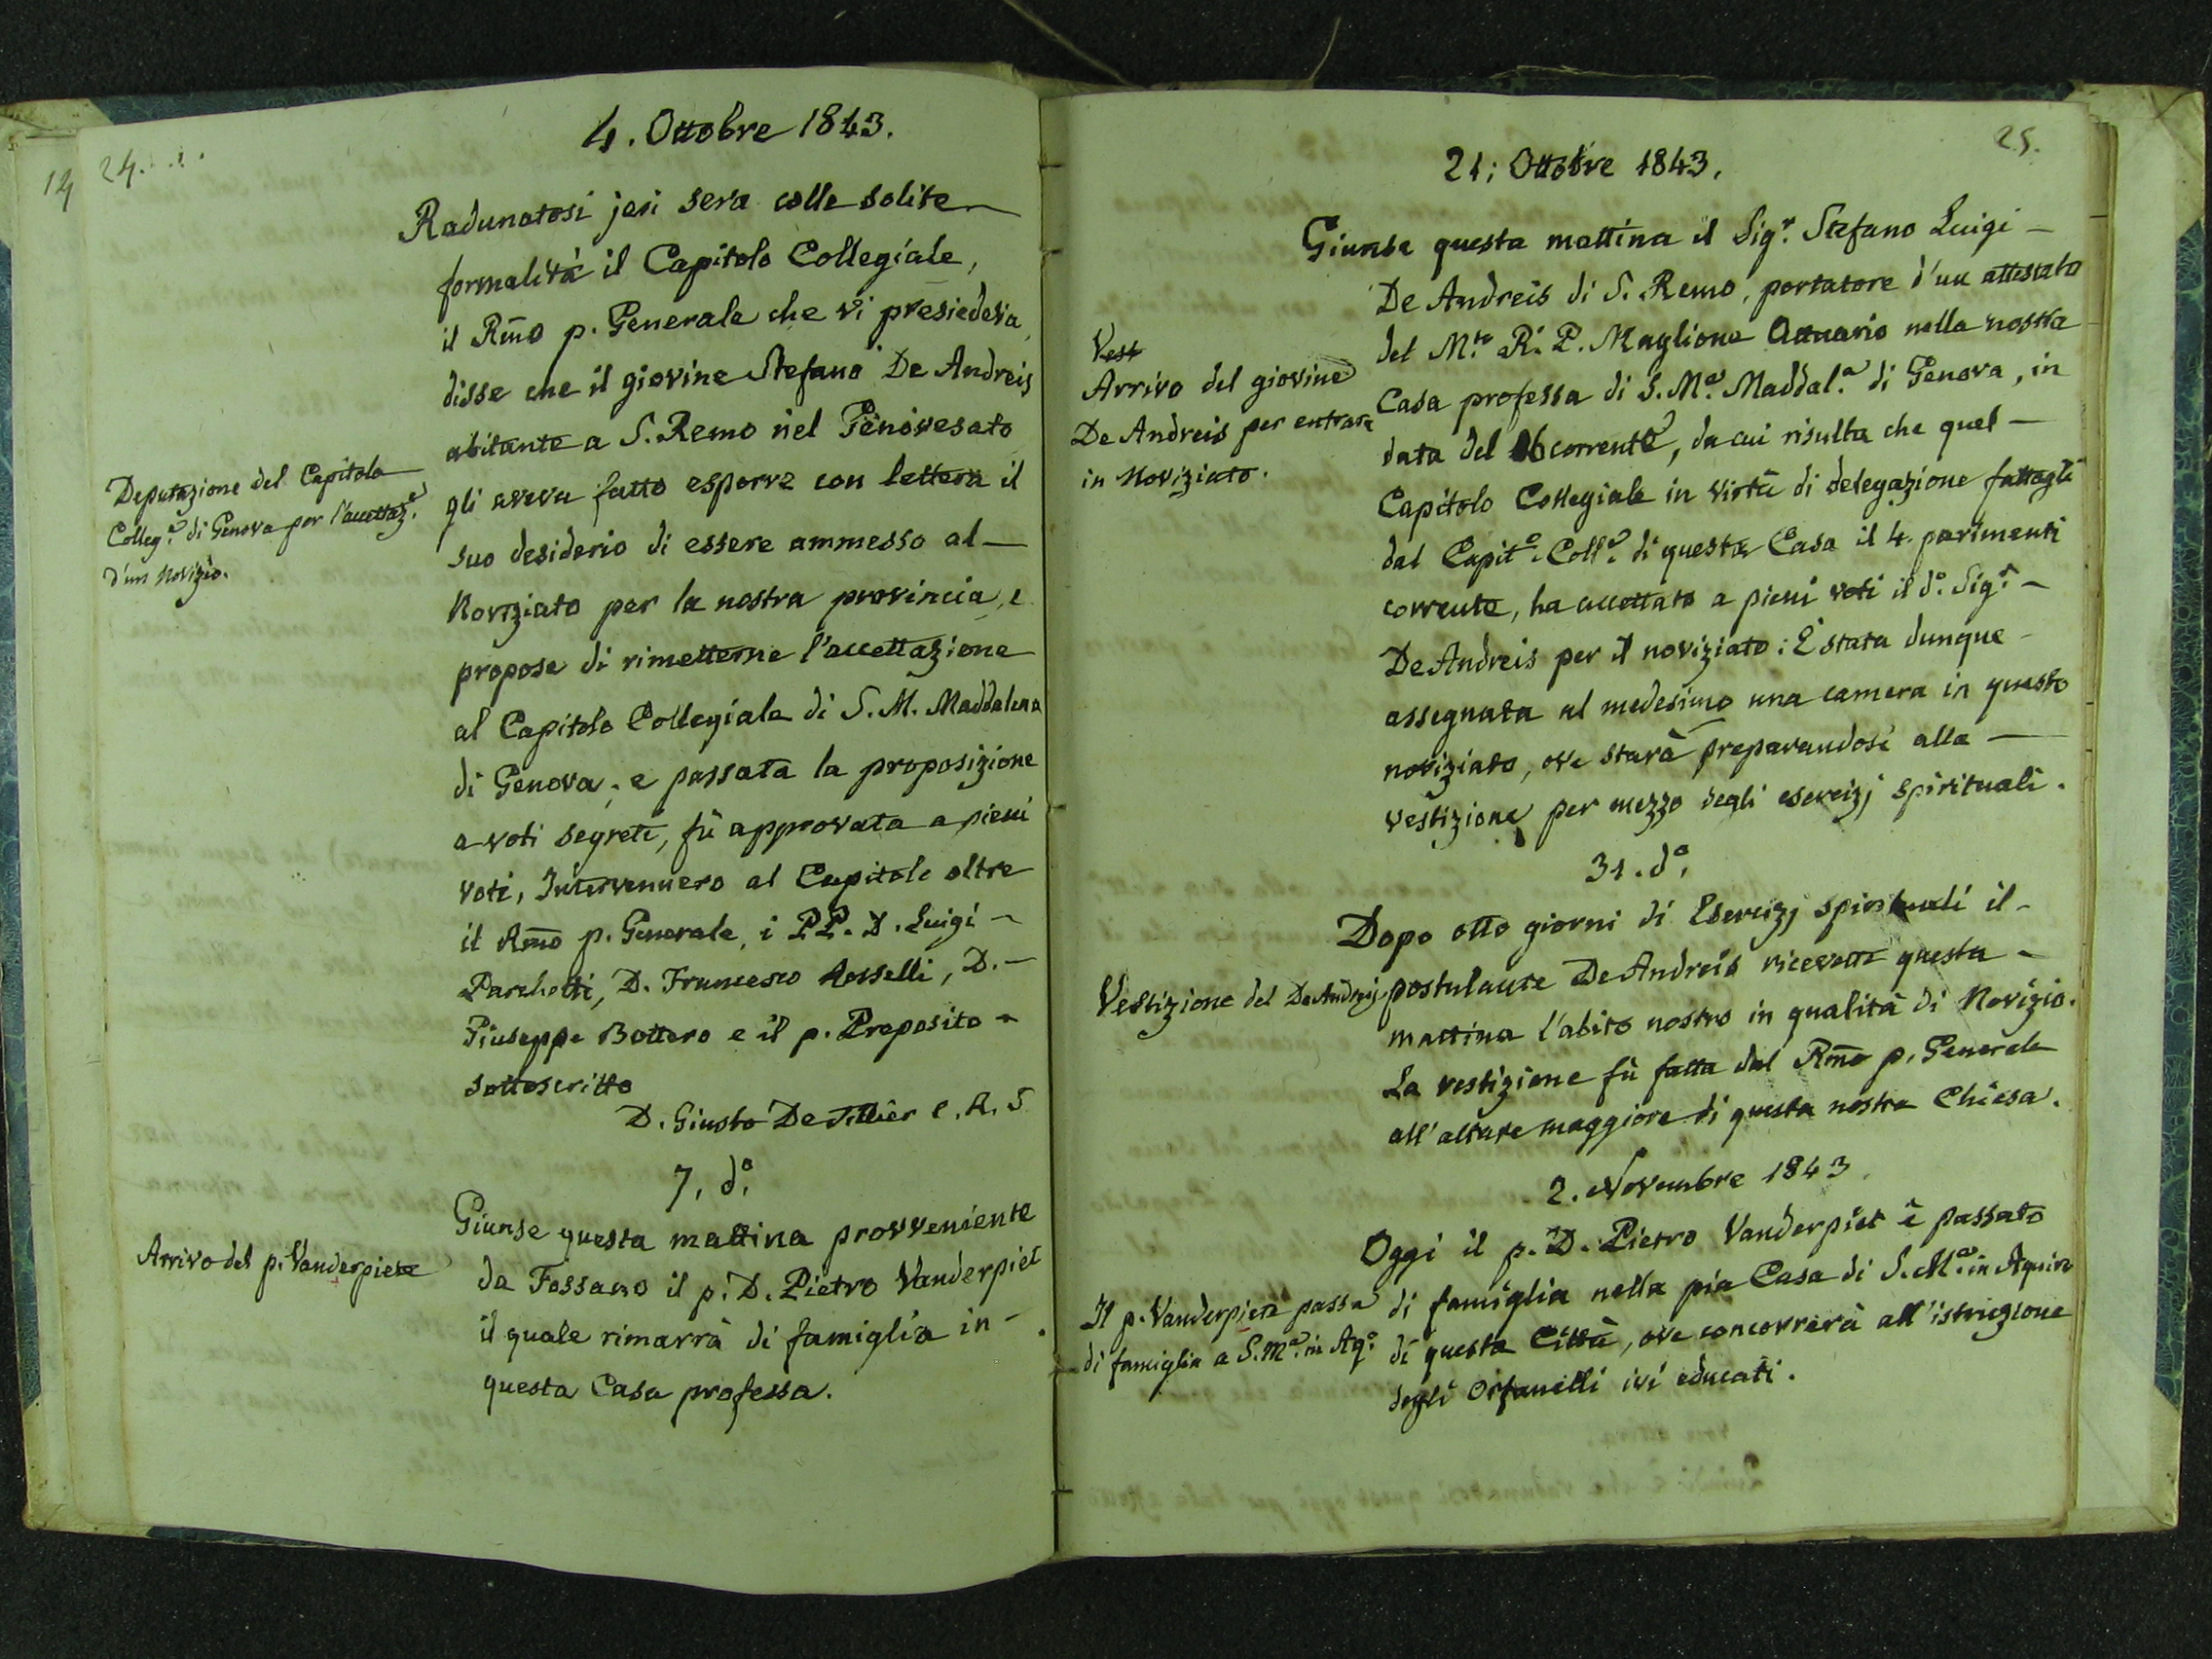 14
24.
4. Ottobre 1843.
Radunatosi jeri sera colle solite
formalità il Capitolo Collegiale,
il Rmo p. Generale che vi presiedeva
disse che il giovine Stefano De Andreis
abitante a S. Remo nel Genovesato
Deputazione del Capitolo
Colleg.e di Genova per l'accettaz.e
d'un Novizio.
gli aveva fatto esporre con lettera il
suo desiderio di essere ammesso al
Noviziato per la nostra provincia, e
propose di rimetterne l'accettazione
al Capitolo Collegiale di S. M. Maddalena
di Genova; e passata la proposizione
a voti segreti, fù approvata a pieni
voti, Intervennero al Capitolo oltre
il Rmo p. Generale, i PP. D. Luigi
Parchetti, D. Francesco Rosselli, D.
Giuseppe Bottero e il p. Preposito
sottoscritto
D. Giusto De Tillier C. R. S
7. d.o
Giunse questa mattina provveniente
Arrivo del p. Vanderpiete
da Fossano il p. D. Pietro Vanderpiet
il quale rimarrà di famiglia in
questa Casa professa.
25.
21; Ottobre 1843.
Giunse questa mattina il Sig.r Stefano Luigi
De Andreis di S. Remo, portatore d'un attestato
del M.to R. P. Maglione Attuario nella nostra
Vest
Arrivo del giovine
De Andreis per entrare
in Noviziato.
Casa professa di S. M.a Maddal.a di Genova, in
data del 16 corrente, da cui risulta che quel
Capitolo Collegiale in virtù di delegazione fattagli
dal Capit.o Coll.e di questa Casa il 4. parimenti
corrente, ha accettato a pieni voti il d.o Sig.r
De Andreis per il noviziato: È stata dunque
assegnata al medesimo una camera in questo
noviziato, ove starà preparandosi alla
vestizione per mezzo degli esercizj spirituali.
31. d.o
Dopo otto giorni di Esercizj spirituali il
Vestizione del De Andreis
postulante De Andreis ricevette questa
mattina l'abito nostro in qualità di Novizio.
La vestizione fù fatta dal Rmo p. Generale
all'altare maggiore di questa nostra Chiesa.
2. Novembre 1843
Oggi il p. D. Pietro Vanderpiet è passato
Il p. Vanderpiete passa
di famiglia a S. M.a in Aq.o
di famiglia nella pia Casa di S. M.a in Aquiro
di questa Città, ove concorrerà all'istruzione
degli Orfanelli ivi educati.